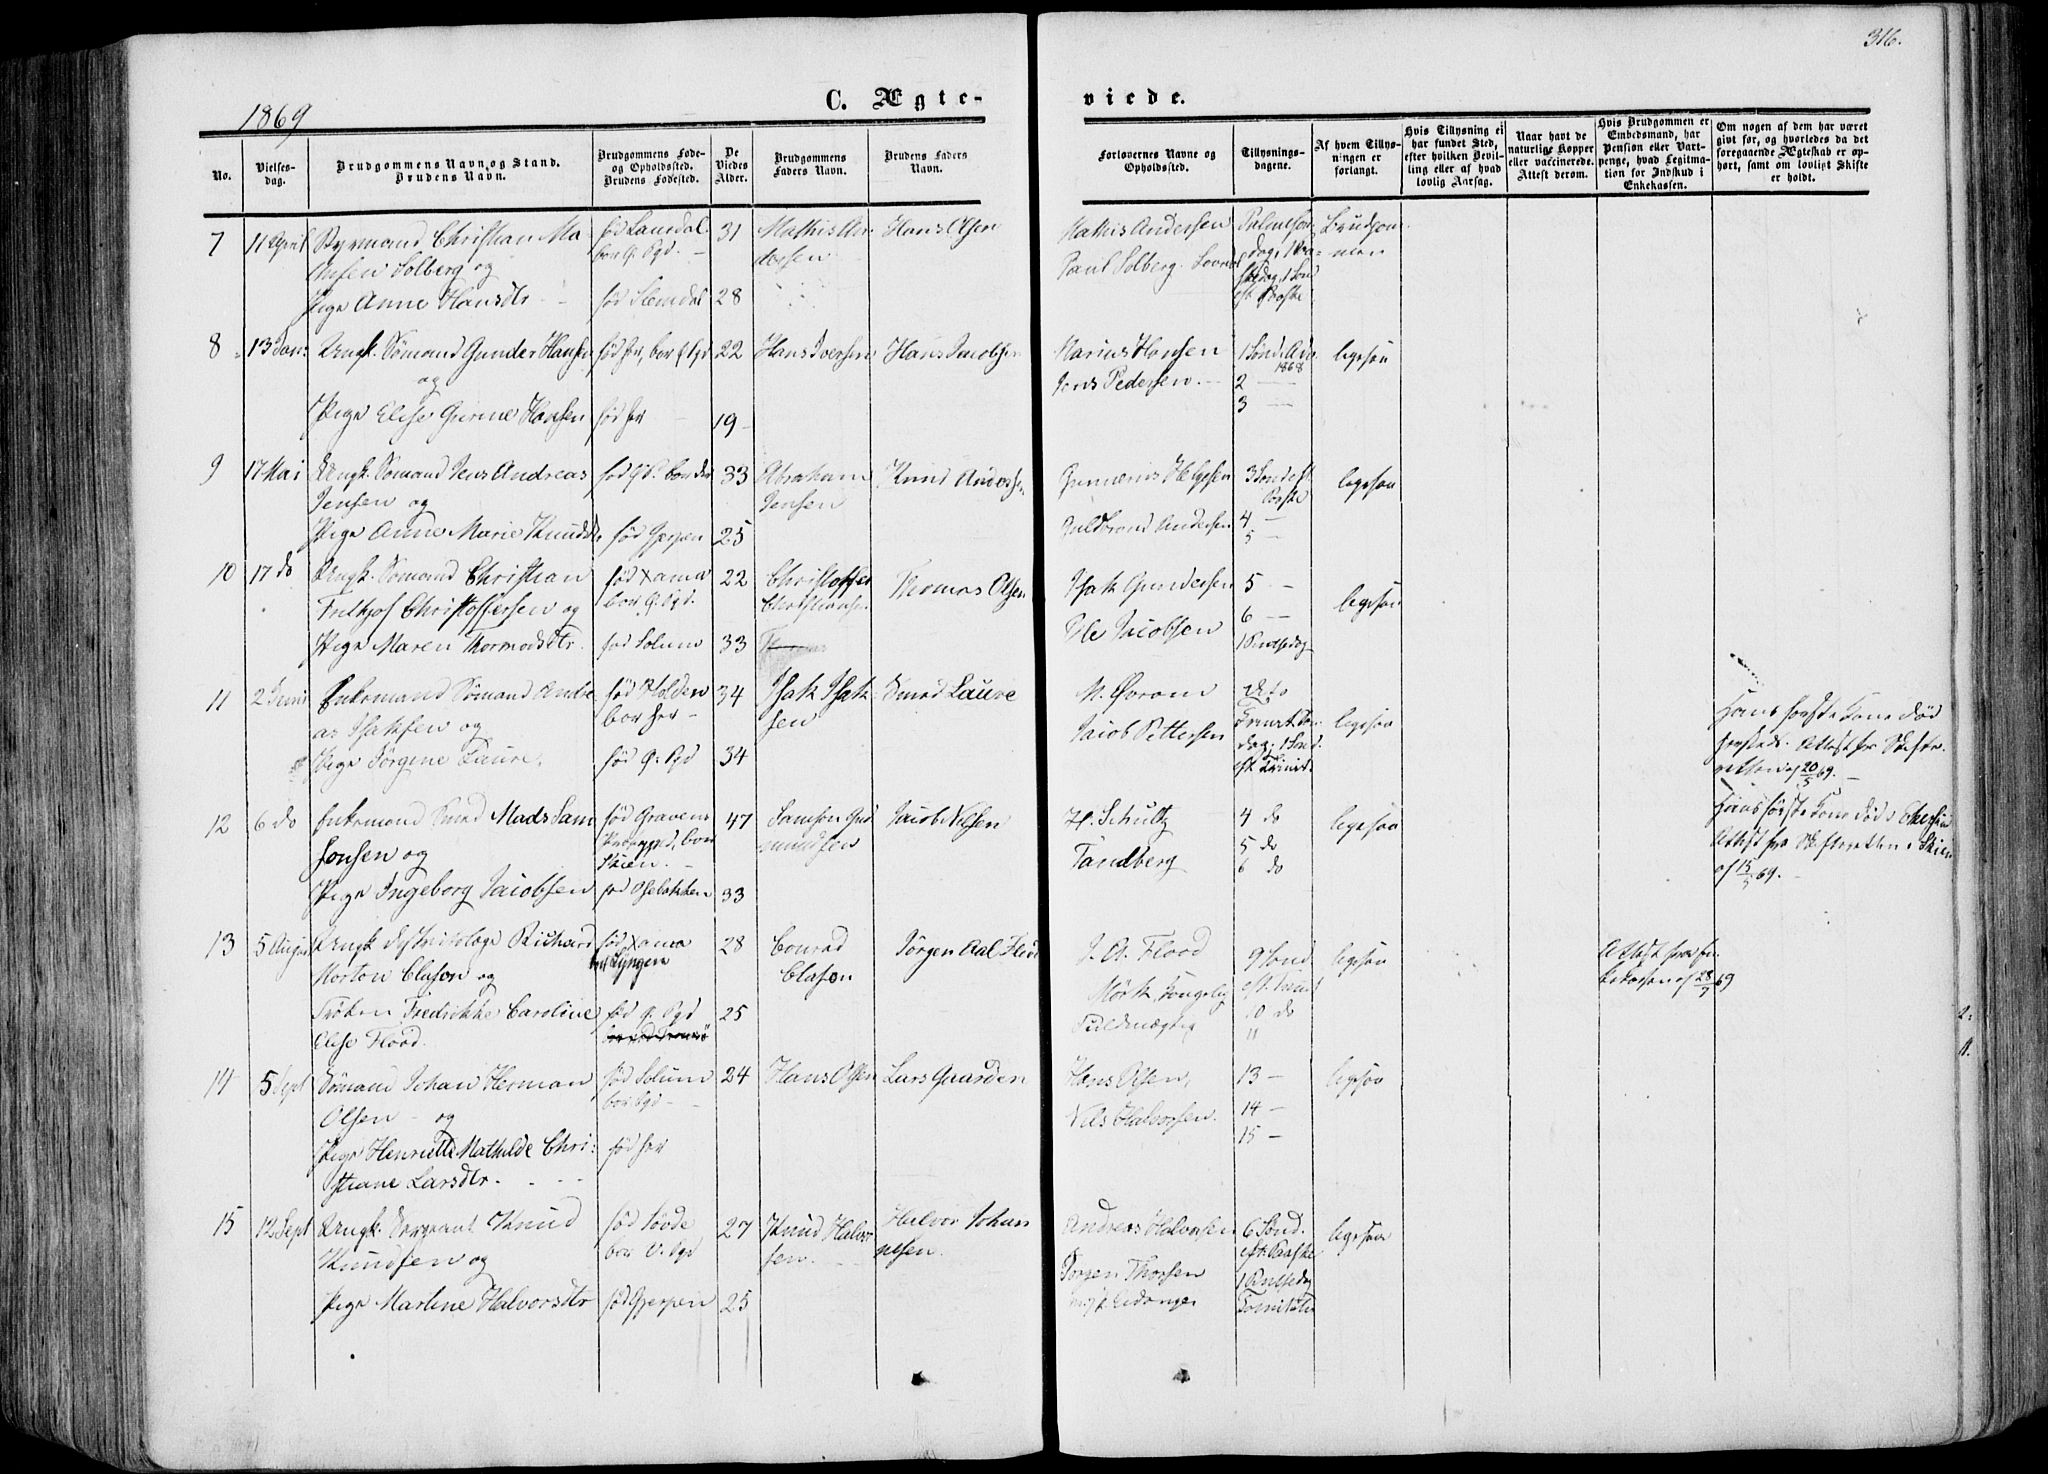 316.
1869
C. Ægte-
viede.
No.
Vielses-
dag.
Brudgommens Navn og Stand.
Brudens Navn.
Brudgommens Føde-
og Opholdssted.
Brudens Fødested.
De
Viedes
Alder.
Brudgommens
Faders Navn.
Brudens Faders
Navn.
Forlovernes Navne og
Opholdssted.
Tillysnings-
dagene.
Af hvem Tillys-
ningen er
forlangt.
Hvis Tillysning ei
har fundet Sted,
efter hvilken Bevil-
ling eller af hvad
lovlig Aarsag.
Naar havt de
naturlige Kopper
eller vaccinerede.
Attest derom.
Hvis Brudgommen er
Embedsmand, har
Pension eller Vart-
penge, hvad Legitima-
tion for Indskud i
Enkekassen.
Om nogen af dem har været
givt før, og hvorledes da det
foregaaende Ægteskab er op-
hørt, samt om lovligt Skifte
er holdt.
7 11 April Styrmand Christian Ma
thisen Solberg og
Pige Anne Hansdtr
født Laurdal
bor G. Pgd.
født Slemdal
31
28
Mathis An
dersen
Hans Olsen
Mathis Andersen
Paul Solberg
Palmeson
dag, 1 Paa-
skedag, 1 Sønd
eft Paaske
Brudgom
men
8 13 Jan: Ungk. Sømand Gunder Hansen
og
Pige Elise Gurine Hansen
født her, bor G Pgd
født her
22
19
Hans Iversen
Hans Jacobsen
Marius Hansen
Jens Pedersen
1 Sønd. Adv.
1868
2 —
3 —
ligesaa
9 17 Mai Ungk. Sømand Jens Andreas
Jensen og
Pige Anne Marie Knudsdtr
født Gjerpen
33
25
Abraham
Jensen
Knud Andersen
Gunerius Helgesen
Guldbrand Andersen
3 Sønd eft
Paaske
4 —
5 —
ligesaa
10 17 do Ungk. Sømand Christian
Frithjof Christoffersen og
Pige Maren Thormodsdtr.
født Xania
bor G. Pgd.
født Solum
22
33
Christoffer
Christiansen
Thomas Olsen
Isak Gundersen
Ole Jacobsen
5 —
6 —
1 Pintsedag
ligesaa
11 2 Juni Enkemand Sømand Andre
as Isaksen og
Pige Jørgine Laure.
født Holden
bor her
født G. Pgd
34
34
Isak Isak
sen
Laure
Jacob Pettersen
Trinit. Søn
dag, 1 Sønd.
eft Trinit.
ligesaa
Hans første Kone død
Attest fra Skifte
retten af 20/5 69.
12 6 do Enkemand Smed Mads Sam
sonsen og
Pige Ingeborg Jacobsen
født Gravens
Præstegjeld, bor
Skien.
47
33
Samson Gud
mundsen
Jacob Nilsen
H. Schultz
Tandberg
4 do
5 do
6 do
ligesaa
Hans første Kone død
Attest fra Skifteretten i Skien
af 15/5 69.
13 5 August Ungk Distriktslæge Richard
Morton Clason og
Frøken Fredrikke Caroline
Elise Flood.
født Xania
bor Lyngen
født G. Pgd
28
25
Conrad
Clason
Jørgen Aal Flood
J. A. Flood
Mørk, Kongelig
Fuldmægtig
9 Sønd
eft. Trinit
10 do
11
ligesaa
Attest fra En
kekassen af 28/7 69
14 5 Sept Sømand Johan Herman
Olsen og
Pige Henriette Mathilde Chri:
stiane Larsdtr.
født Solum
bor Pgd
født her
24
Hans Olsen
Lars Gaarden
Hans Olsen,
Nils Halvorsen.
13 —
14 —
15 —
ligesaa
15 12 Sept Ungk. Sergeant Knud
Knudsen og
Pige Martine Halvorsdtr
født Sovde
bor G. Pgd
født Gjerpen
27
25
Knud Halvor
sen.
Halvor Johan
nesen.
Andreas Halvorsen
Jørgen Thorsen
Eidanger
6 Sønd.
eft. Paaske
1 Pintsedag
ligesaa